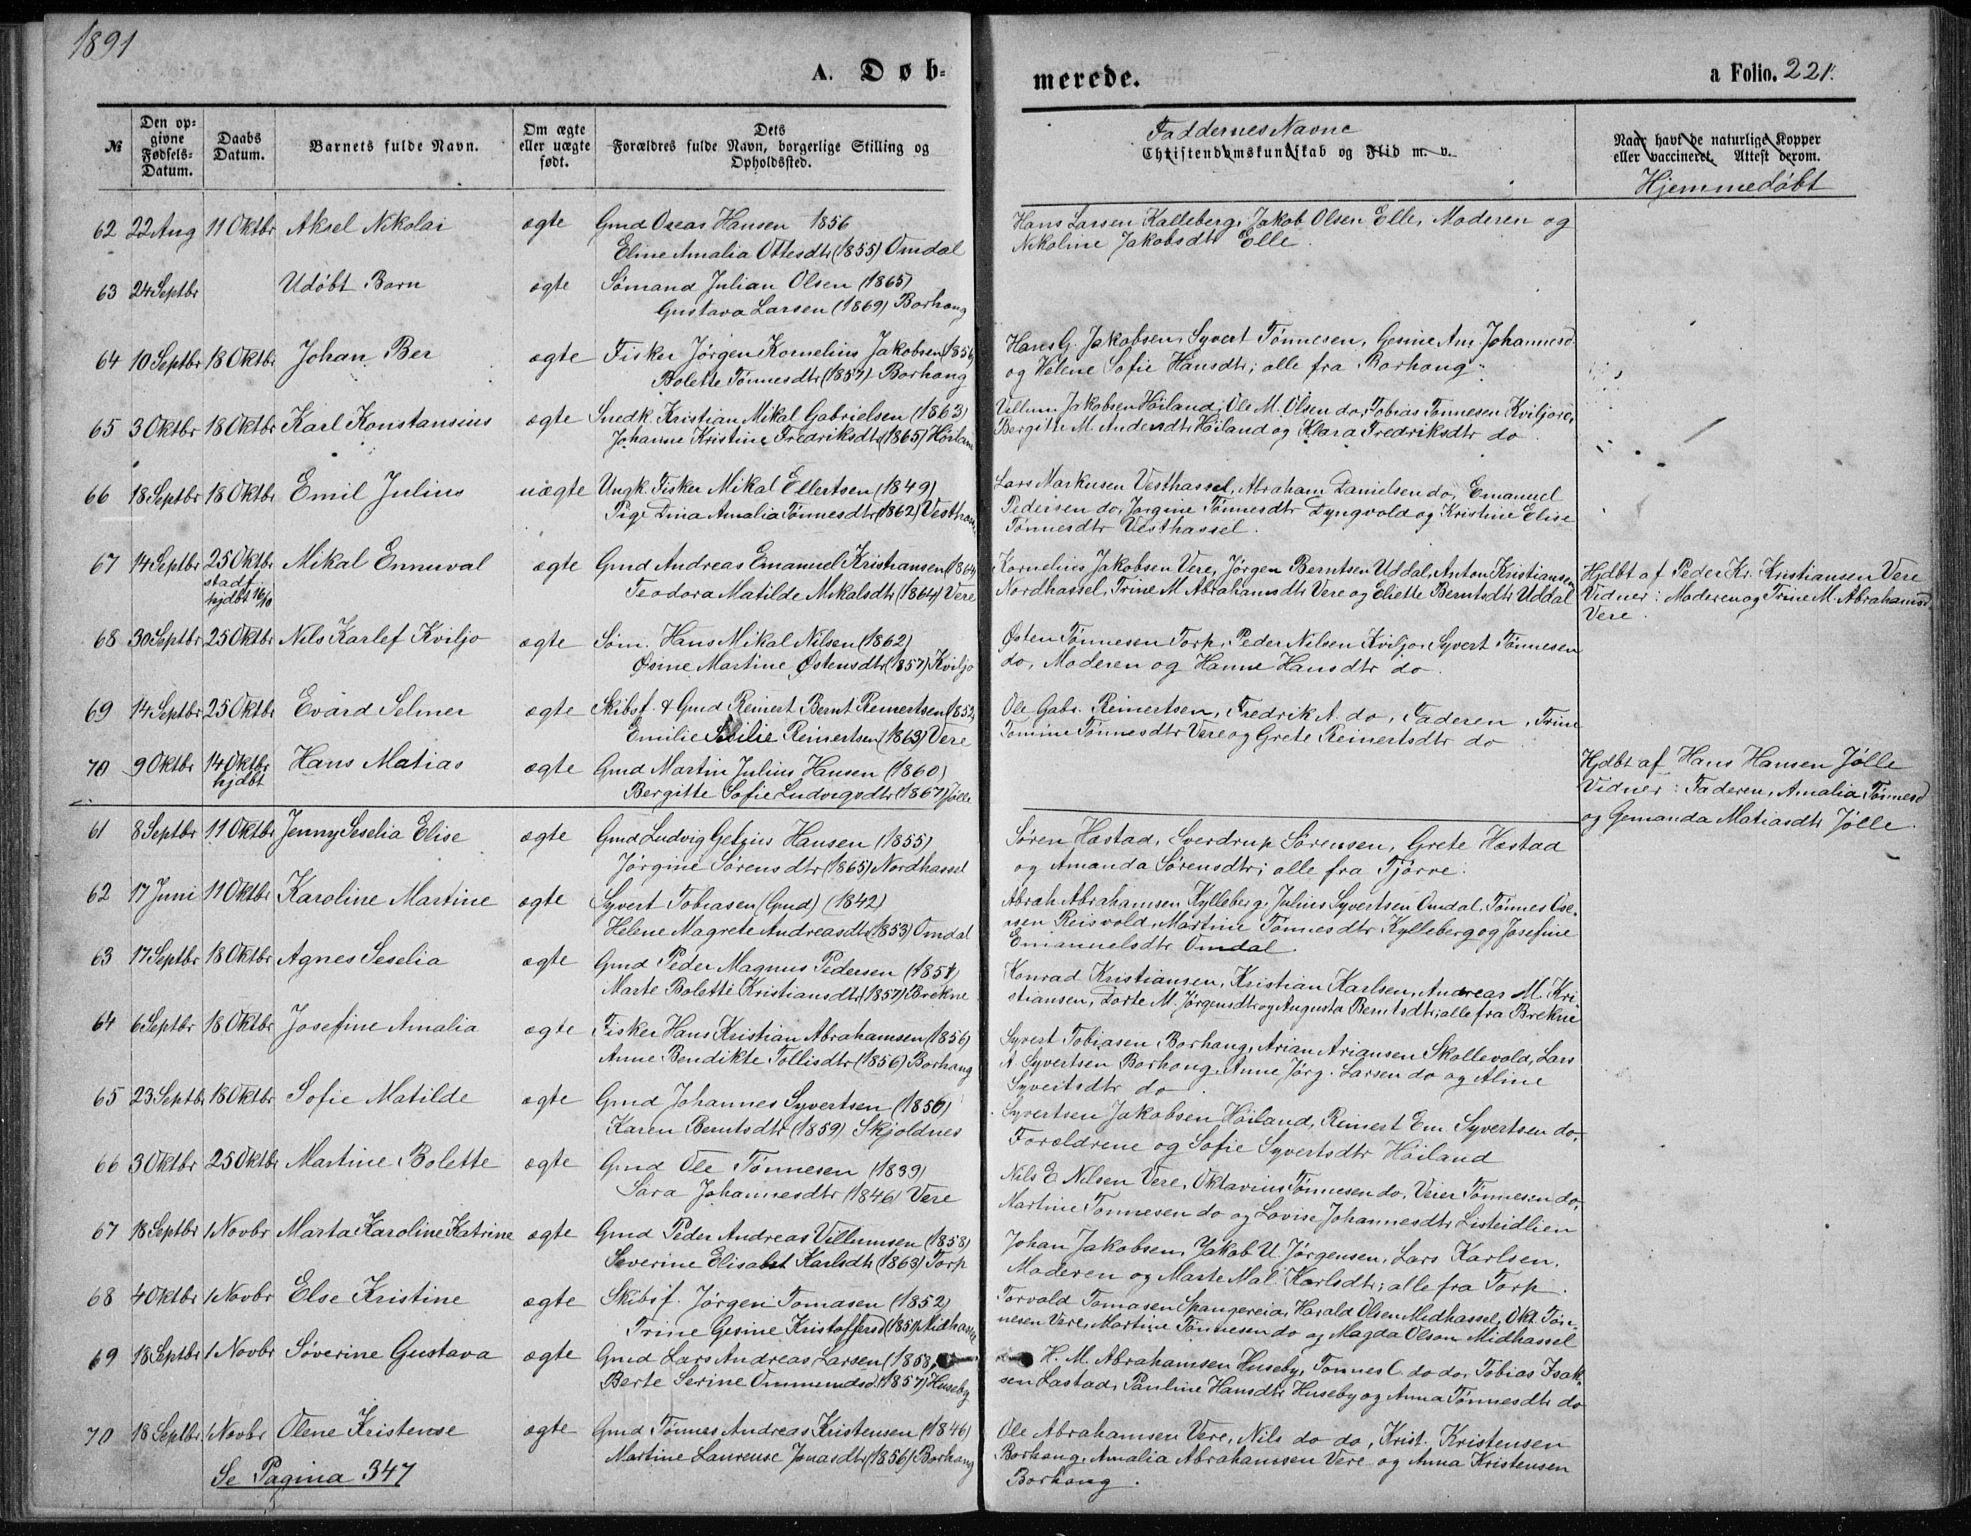 1891
A. Døb-
merede.
a Folio. 221.
№
Den op-
givne
Fødsels-
Datum.
Daabs
Datum.
Barnets fulde Navn.
Om ægte
eller uægte
født.
Dets
Forældres fulde Navn, borgerlige Stilling og
Opholdssted.
Faddernes Navne
Christendomskundskab og Flid m. v.
Naar havt de naturlige Kopper
eller vaccineret. Attest derom.
Hjemmedøbt
62 22 Aug 11 Oktbr Aksel Nikolai ægte Gmd Oseas Hansen 1856
Eline Amalia Ottesdtr (1855) Omdal
Hans Larsen Kalleberg, Jakob Olsen Elle, Moderen og
Nikoline Jakobsdtr Elle.
63 24 Septbr Udøbt Barn ægte Sømand Julian Olsen (1865)
Gustava Larsen (1869) Borhaug
64 10 Septbr 18 Oktbr Johan Ber ægte Fisker Jørgen Kornelius Jakobsen (1856)
Bolette Tønnesdtr (1857) Borhaug
Hans G. Jakobsen, Syvert Tønnesen, Gesine Am. Johannesd
og Velene Sofie Hansdtr; alle fra Borhaug
65 3 Oktbr 18 Oktbr Karl Konstansius ægte Snedk. Kristian Mikal Gabrielsen (1863)
Johanne Kristine Fredriksdtr (1865) Høiland
Villum Jakobsen Høiland, Ole M. Olsen do, Tobias Tønnesen Kviljore,
Bergitte M. Andersdtr Høiland og Klara Fredriksdtr do.
66 18 Septbr 18 Oktbr Emil Julius uægte Ungk. Fisker Mikal Ellertsen (1849)
Pige Dina Amalia Tønnesdtr (1862) Vesthas.
Lars Markusen Vesthassel, Abraham Danielsen do, Emanuel
Pedersen do, Jørgine Tønnesdtr Dyngvold og Kristine Elise
Tønnesdtr Vesthassel.
67 14 Septbr 25 Oktbr Mikal Ennuval ægte Gmd Andreas Emanuel Kristiansen (1864)
stadf.
hjdbt 16/10
Teodora Matilde Mikalsdtr (1864) Vere
Kornelius Jakobsen Vere, Jørgen Berntsen Uddal, Anton Kristiansen
Nordhassel, Trine M Abrahamsdtr Vere og Eliette Berntsdtr Uddal
Hjdbt af Peder Kr. Kristiansen Vere
Vidner: Moderen og Trine M. Abrahamsd
Vere.
68 30 Septbr 25 Oktbr Nils Karlef Kviljo ægte Søm. Hans Mikal Nilsen (1862)
Osine Martine Østensdtr (1857) Kviljo
Østen Tønnesen Torp, Peder Nilsen Kviljo, Syvert Tønnesen
do, Moderen og Hanne Hansdtr do.
69 14 Septbr 25 Oktbr Evard Selmer ægte Skibsf. & Gmd Reinert Bernt Reinertsen (1852)
Emilie Sesilie Reinertsen (1863) Vere
Ole Gabr. Reinertsen, Fredrik A. do, Faderen, Trine
Tomine Tønnesdtr Vere og Grete Reinertsdtr do
70 9 Oktbr 14 Oktbr Hans Matias ægte Gmd Martin Julius Hansen (1860)
hjdbt
Bergitte Sofie Ludvigsdtr (1867) Jølle
Hjdbt af Hans Hansen Jølle
Vidner: Faderen, Amalia Tønnesd
og Gemanda Matiasdtr Jølle.
61 8 Septbr 11 Oktbr Jenny Seselia Elise ægte Gmd Ludvig Getzius Hansen (1855)
Jørgine Sørensdtr (1865) Nordhassel
Søren Hastad, Sverdrup Sørensen, Grete Hastad
og Amanda Sørensdtr; alle fra Tjørve.
62 17 Juni 11 Oktbr Karoline Martine ægte Syvert Tobiasen (Gmd) (1842)
Helene Magrete Andreasdtr (1853) Omdal
Abrah Abrahamsen Kylleberg, Julius Syvertsen Omdal, Tønnes Ose-
asen Reisvold, Martine Tønnesdtr Kylleberg og Josefine
Emanuelsdtr Omdal.
63 17 Septbr 18 Oktbr Agnes Seselia ægte Gmd Peder Magnus Pedersen (1851)
Marte Bolette Kristiansdtr (1857) Brekne
Konrad Kristiansen, Kristian Karlsen, Andreas M. Kri-
stiansen, Dorte M. Jørgensdtr og Augusta Berntsdtr; alle fra Brekne
64 6 Septbr 18 Oktbr Josefine Amalia ægte Fisker Hans Kristian Abrahamsen (1856)
Anne Bendikte Tollisdtr (1856) Borhaug
Syvert Tobiasen Borhaug, Arian Ariansen Skollevold, Lars
A. Syvertsen Borhaug, Anne Jørg. Larsen do og Aline
Syvertsdtr do
65 23 Septbr 18 Oktbr Sofie Matilde ægte Gmd Johannes Syvertsen (1856)
Karen Berntsdtr (1859) Skjoldnes
Syvertsen Jakobsen Høiland, Reinert Em. Syvertsen do,
Forældrene og Sofie Syvertsdtr Høiland
66 3 Oktbr 25 Oktbr Martine Bolette ægte Gmd Ole Tønnesen (1839)
Sara Johannesdtr (1846) Vere
Nils E. Nilsen Vere, Oktavius Tønnesen do, Veier Tønnesen do,
Martine Tønnesen do og Lovise Johannesdtr Listeidlien
67 18 Septbr 1 Novbr Marta Karoline Katrine ægte Gmd Peder Andreas Villumsen (1858)
Severine Elisabet Karlsdtr (1863) Torp
Johan Jakobsen, Jakob U. Jørgensen, Lars Karlsen,
Moderen og Marte Mal. Karlsdtr; alle fra Torp.
68 4 Oktbr 1 Novbr Else Kristine ægte Skibsf. Jørgen Tomasen (1852)
Trine Gesine Kristoffersd (1851) Midhassel
Torvald Tomasen Spangereid, Harald Olsen Midhassel, Okt. Tøn-
nesen Vere, Martine Tønnesen do og Magda Olsen Midhassel
69 18 Septbr 1 Novbr Søverine Gustava ægte Gmd Lars Andreas Larsen (1858)
Berte Serine Ommundsd (1857) Huseby
H. M. Abrahamsen Huseby, Tønnes C do do, Tobias Isak-
sen Lastad, Pauline Hansdtr Huseby og Anna Tønnesdtr do
70 18 Septbr 1 Novbr Olene Kristense ægte Gmd Tønnes Andreas Kristensen (1846)
Martine Laurense Jonasdtr (1856) Borhaug
Ole Abrahamsen Vere, Nils do do, Krist. Kristensen
Borhaug, Amalia Abrahamsen Vere og Anna Kristensen
Borhaug.
Se Pagina 347